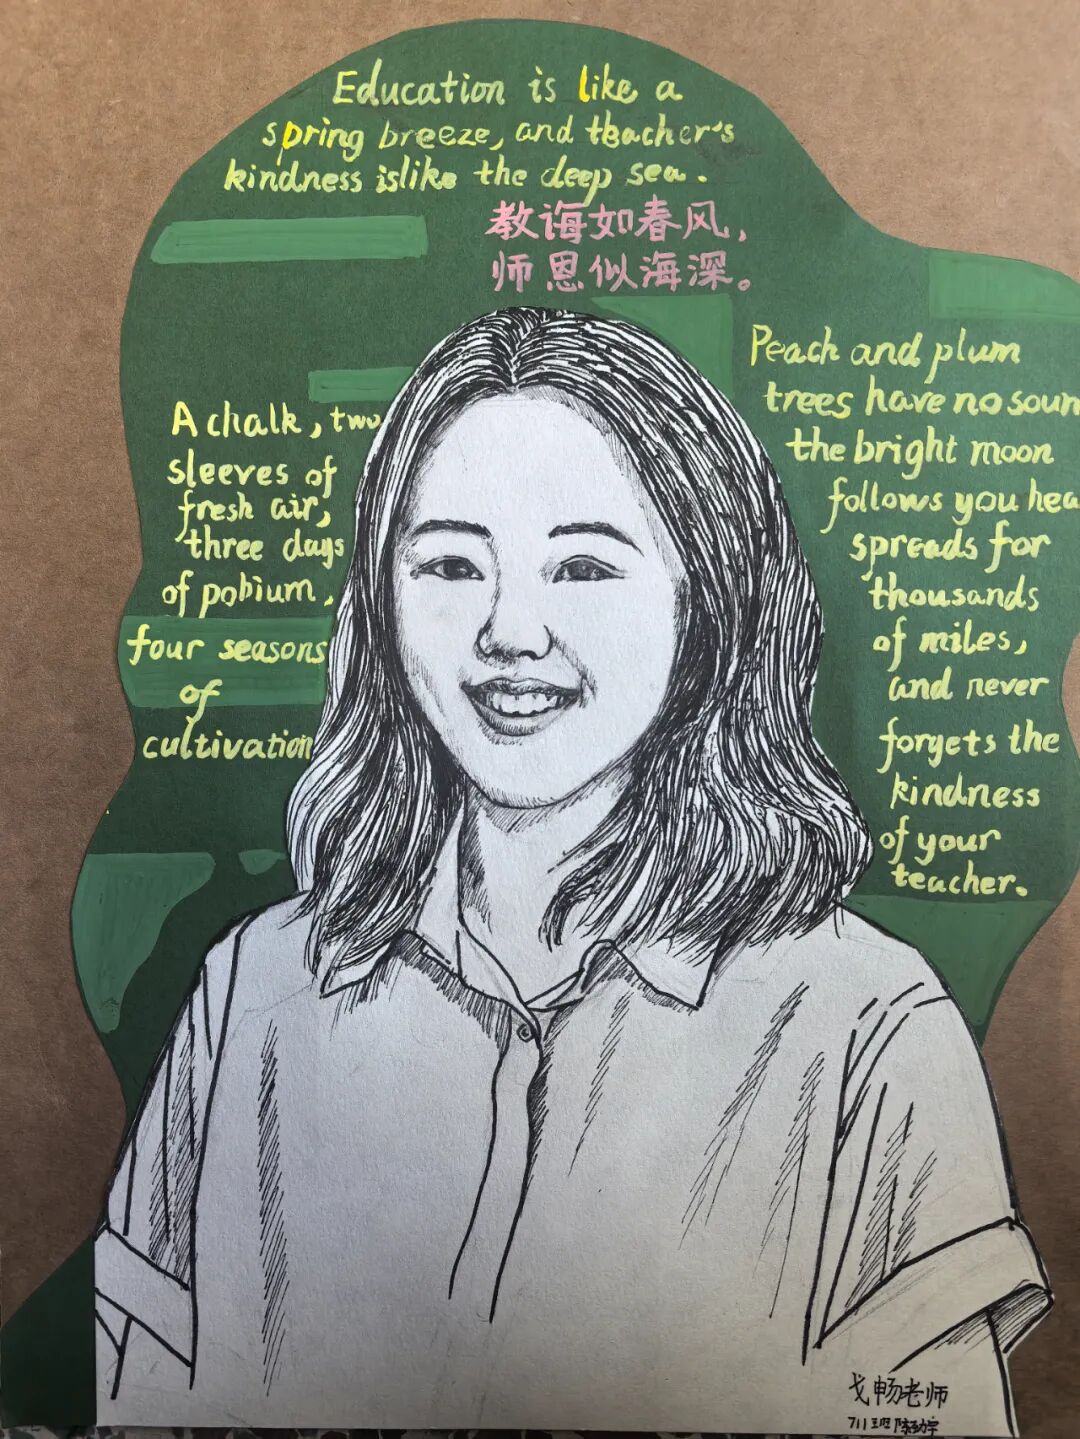 Education is like a
spring breeze, and teacher's
kindness islike the deep sea.
教诲如春风，
师恩似海深。
A chalk, two
sleeves of
fresh air,
three days
of pobium,
four seasons
of
cultivation
Peach and plum
trees have no soun
the bright moon
follows you hea
spreads for
thousands
of miles,
and never
forgets the
kindness
of your
teacher.
戈畅老师
711班陈劲宇